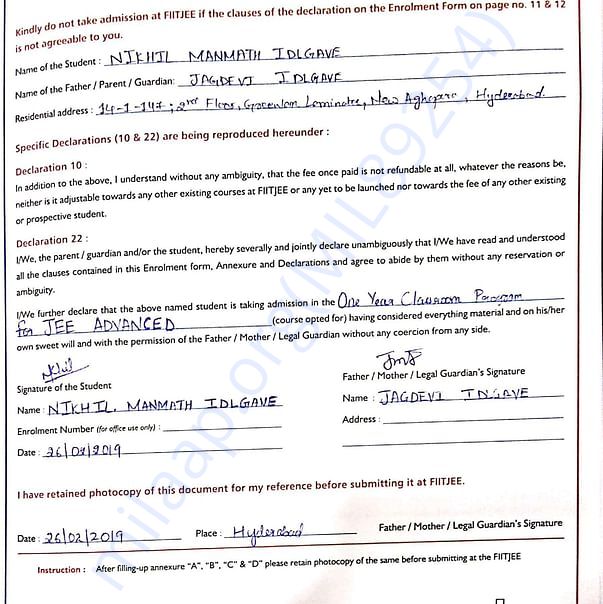 Kindly do not take admission at FIITJEE if the clauses of the declaration on the Enrolment Form on page no. 11 & 12
is not agreeable to you.
Name of the Student : NIKHIL MANMATH IDLGAVE
Name of the Father / Parent / Guardian: JAGDEVI IDLGAVE
Residential address : 14-1-147, 2nd Floor, Laminate, New Aghapura, Hyderabad.
Specific Declarations (10 & 22) are being reproduced hereunder :
Declaration 10 :
In addition to the above, I understand without any ambiguity, that the fee once paid is not refundable at all, whatever the reasons be,
neither is it adjustable towards any other existing courses at FIITJEE or any yet to be launched nor towards the fee of any other existing
or prospective student.
Declaration 22 :
I/We, the parent / guardian and/or the student, hereby severally and jointly declare unambiguously that I/We have read and understood
all the clauses contained in this Enrolment form, Annexure and Declarations and agree to abide by them without any reservation or
ambiguity.
I/We further declare that the above named student is taking admission in the One Year Classroom Program
for JEE ADVANCED (course opted for) having considered everything material and on his/her
own sweet will and with the permission of the Father / Mother / Legal Guardian without any coercion from any side.
Signature of the Student
Father / Mother / Legal Guardian's Signature
Name : NIKHIL. MANMATH IDLGAVE
Name : JAGDEVI
Enrolment Number (for office use only) :
Address :
Date : 26/02/2019
I have retained photocopy of this document for my reference before submitting it at FIITJEE.
Date : 26/02/2019 Place : Hyderabad Father / Mother / Legal Guardian's Signature
Instruction : After filling-up annexure "A", "B", "C" & "D" please retain photocopy of the same before submitting at the FIITJEE
milaap.org/(MIL89254)